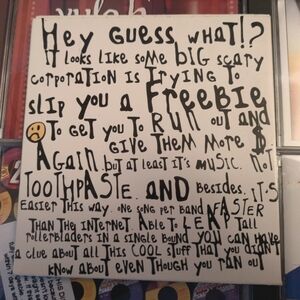 HEY GUESS WHAT!?
IT lOOKS liKE SOME biG SCARY
CORPORATION iS TRYiNG TO
SliP YOU A FREEBiE
TO GET YOU TO RUN OUT AND
GiVE THEM MORE $
AGAiN. bUT AT lEAST iT'S MUSiC. NOT
TOOTHPASTE. AND BESiDES, iT'S
EASiER THiS WAY. ONE SONG PER bAND FASTER
THAN THE iNTERNET. AblE TO lEAP TAll
ROllERblADERS iN A SiNGlE bOUND. YOU CAN HAVE
A CLUE AbOUT All THiS COOl STUFF THAT YOU DiDN'T
KNOW AbOUT EVEN THOUGH YOU RAN OUT